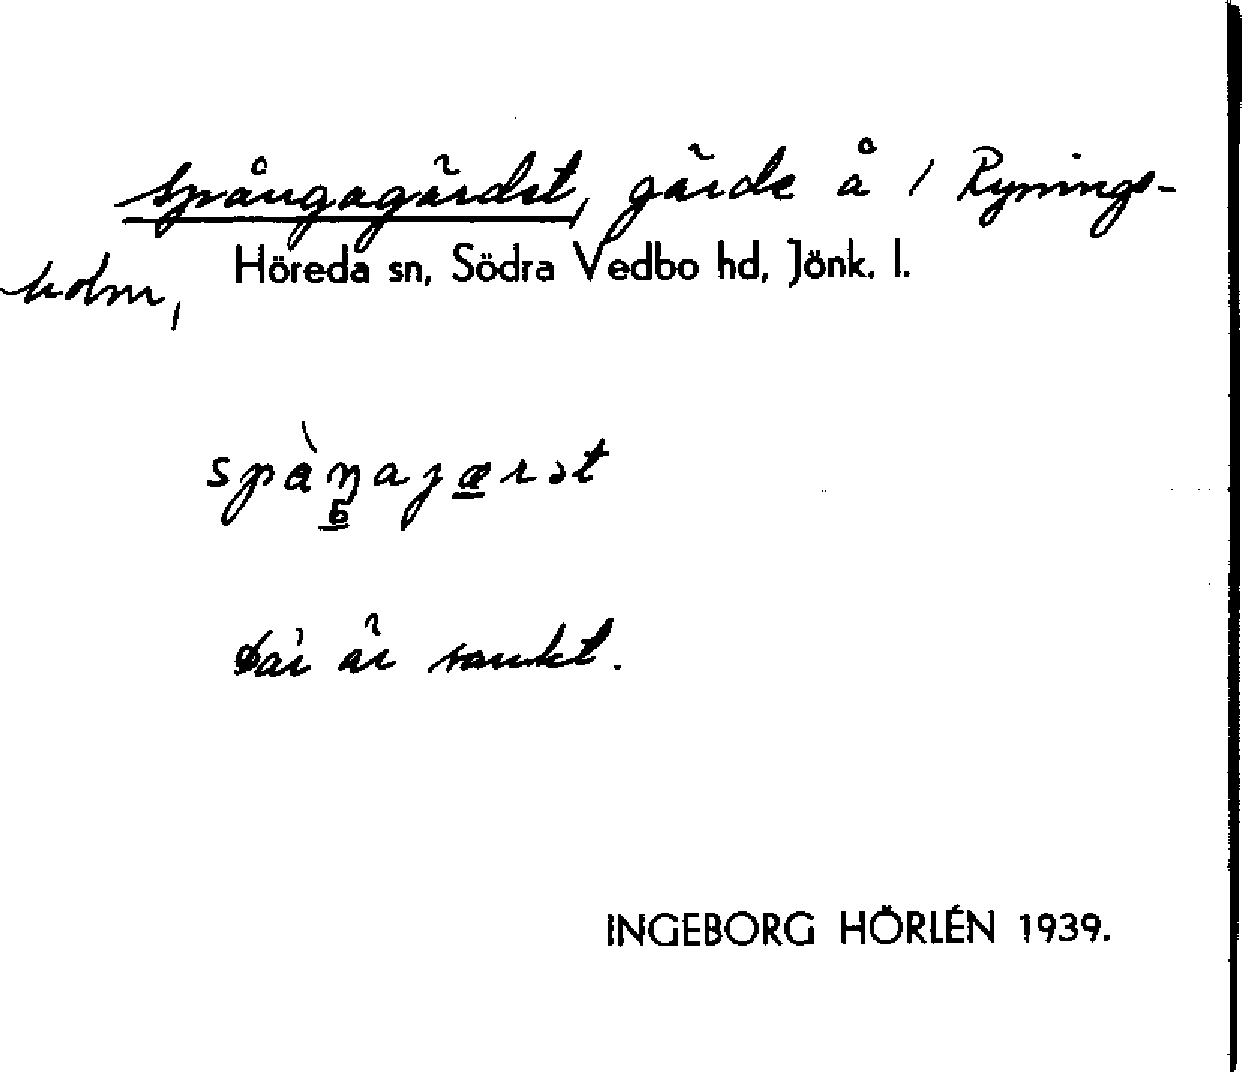 Spångagärdet, gärde å 1 Rynings-
holm,
Höreda sn, Södra Vedbo hd, Jönk. l.
spåŋagærət
Där är sankt.
INGEBORG HÖRLÉN 1939.